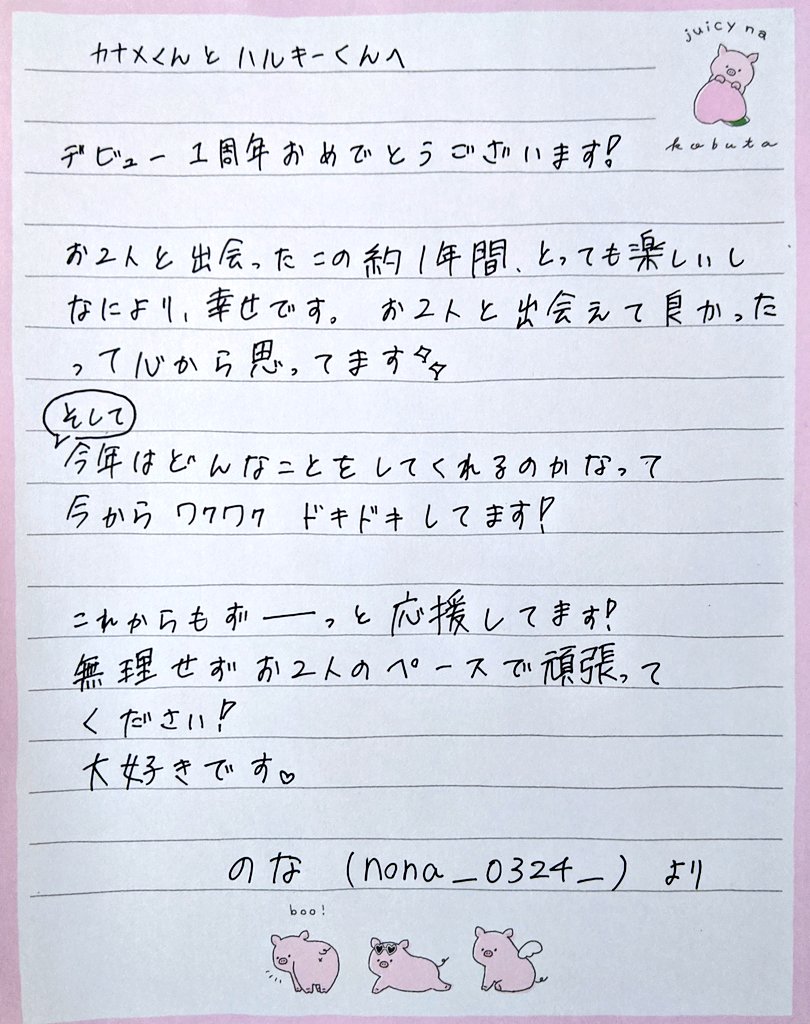 juicy na
kobuta
カナメくんとハルキーくんへ
デビュー1周年おめでとうございます!
お2人と出会ったこの約1年間、とっても楽しいし
なにより、幸せです。 お2人と出会えて良かった
って心から思ってます
そして
今年はどんなことをしてくれるのかなって
今からワクワク ドキドキしてます!
これからもずーっと応援してます!
無理せずお2人のペースで頑張って
ください!
大好きです♡
のな (nona_0324_) より
boo!